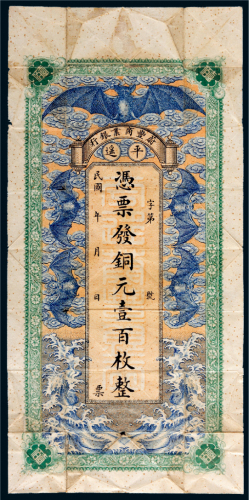 蔚豐商業銀行
平遙
字第 號
憑票發銅元壹百枚整
民國 年 月 日 票